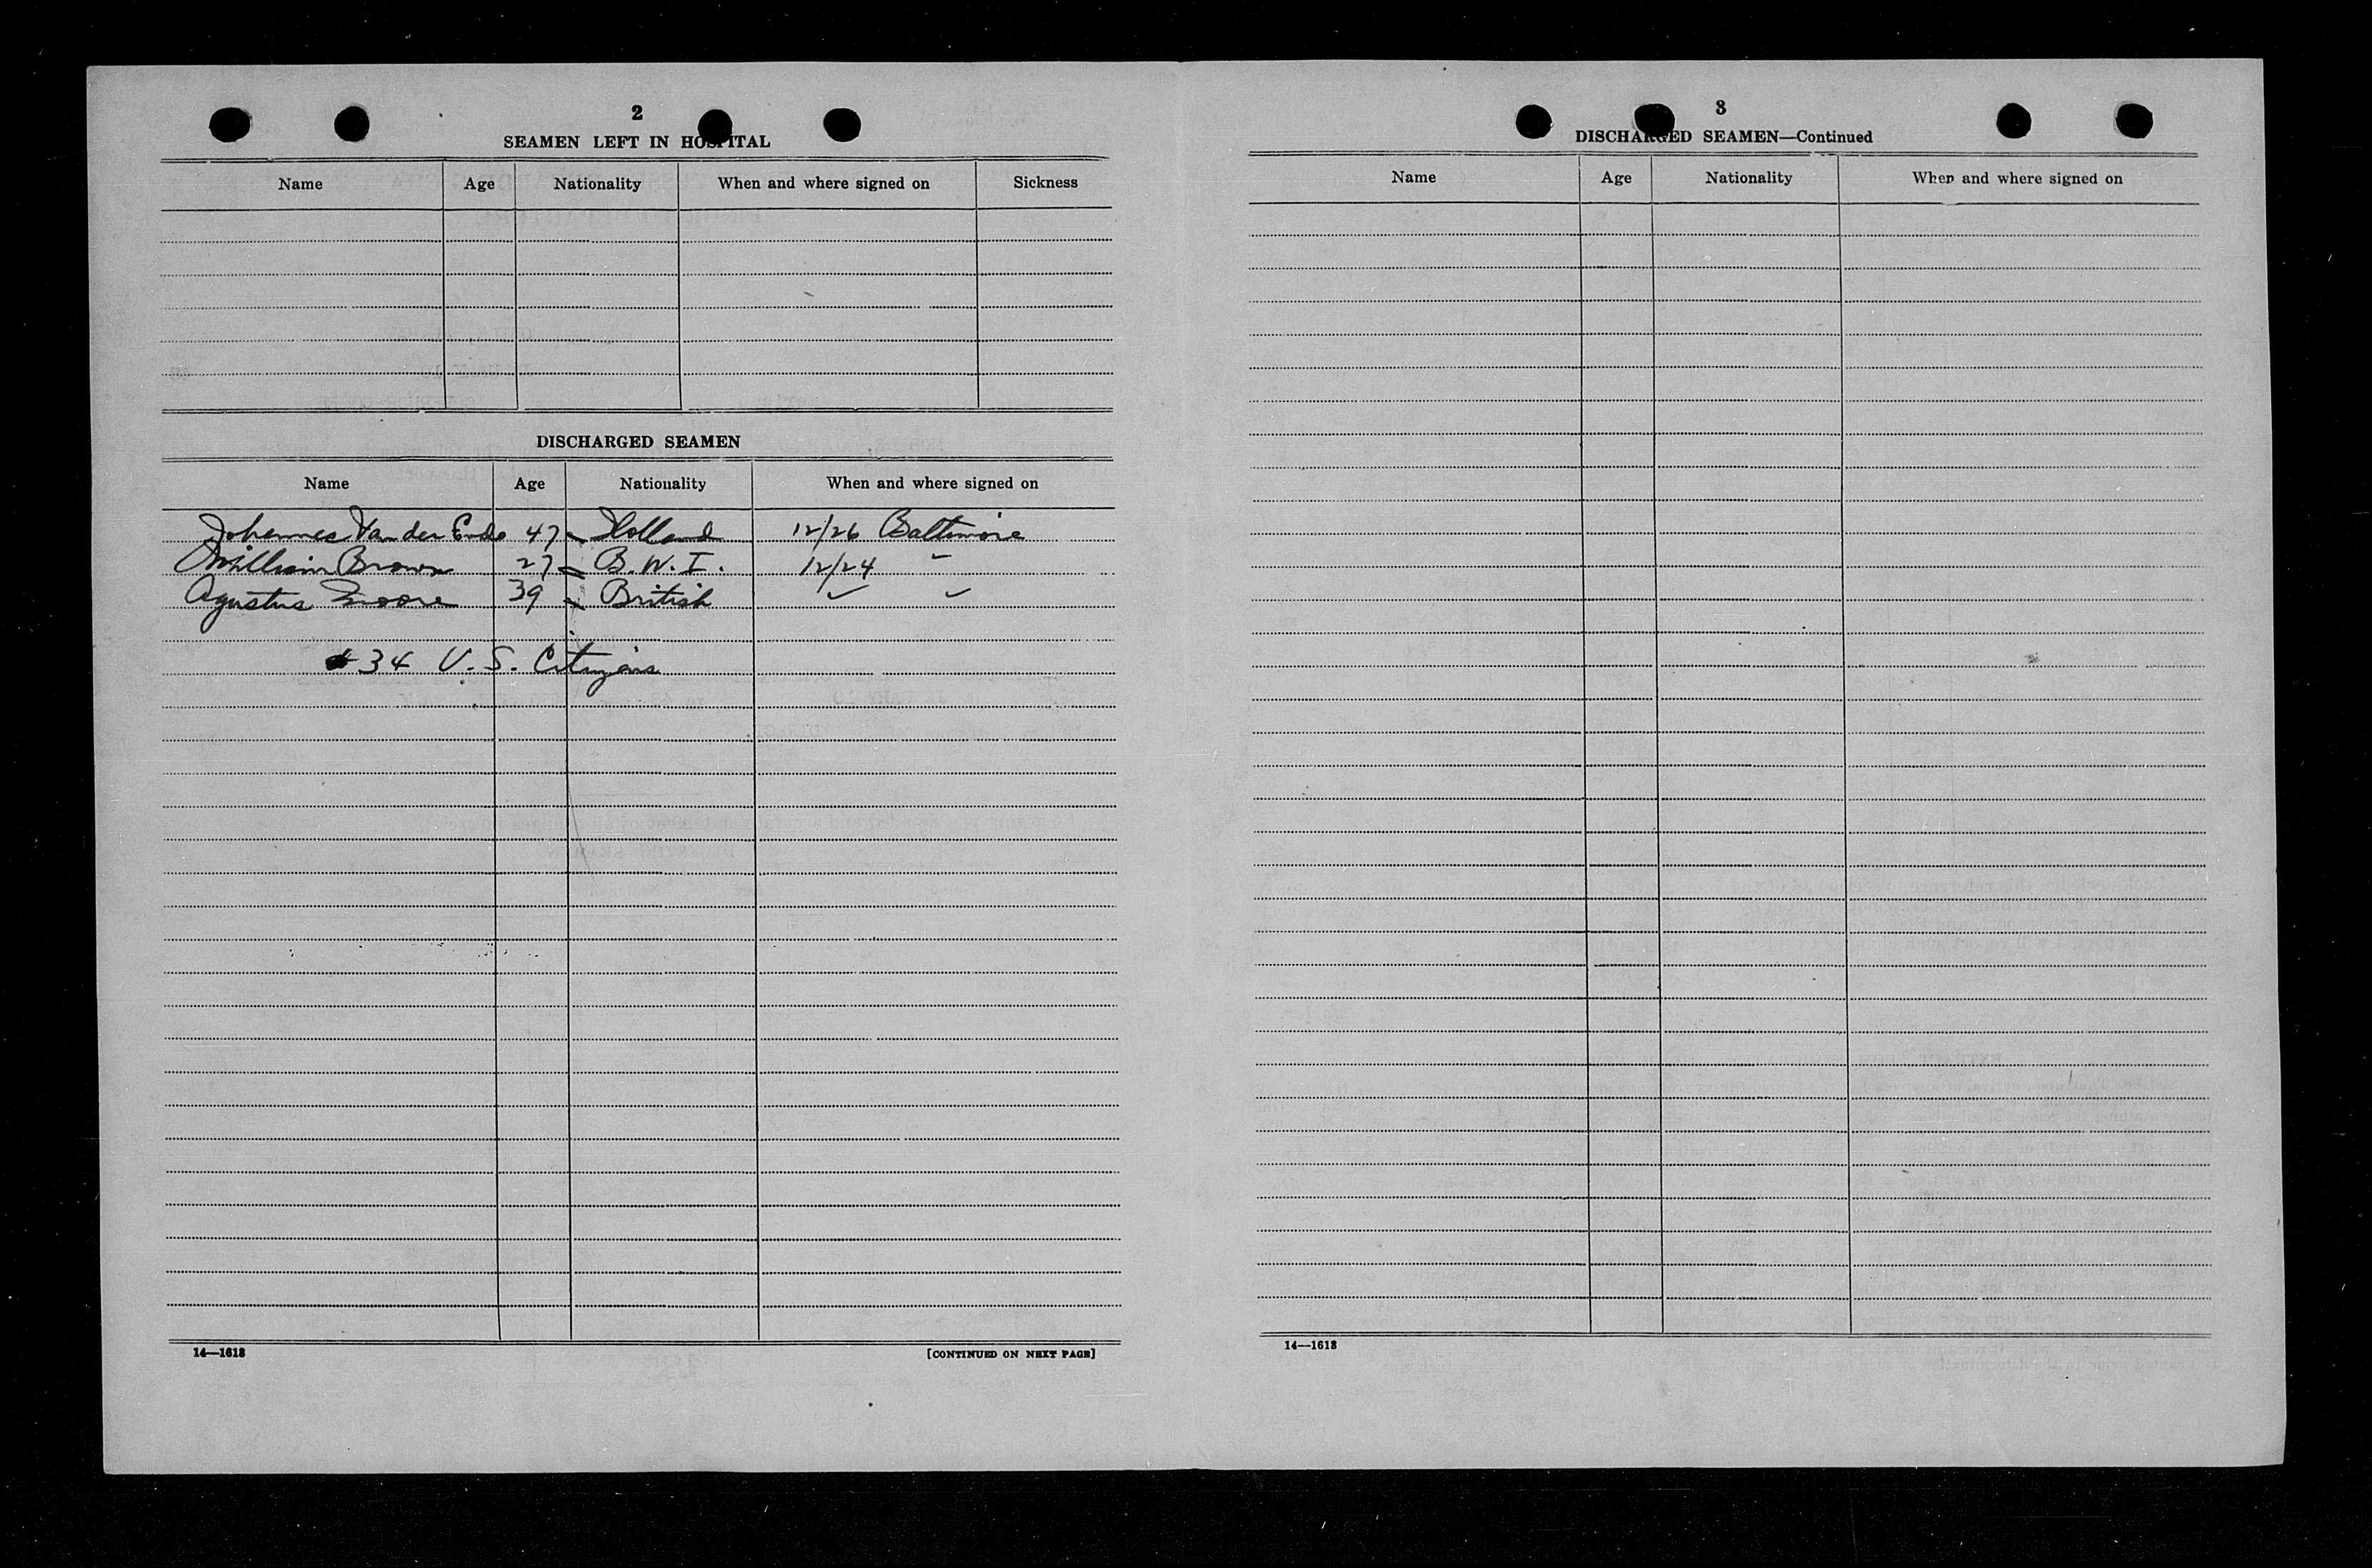 2
SEAMEN LEFT IN HOSPITAL
Name Age Nationality When and where signed on Sickness
DISCHARGED SEAMEN
Name Age Nationality When and where signed on
Johannes Van der Ende 47 - Holland 12/26 Baltimore
William Brown 27 = B.W.I. 12/24 "
Agustus Moore 39 - British " "
34 U.S. Citizens
14—1613 [CONTINUED ON NEXT PAGE]
3
DISCHARGED SEAMEN—Continued
Name Age Nationality When and where signed on
14—1613